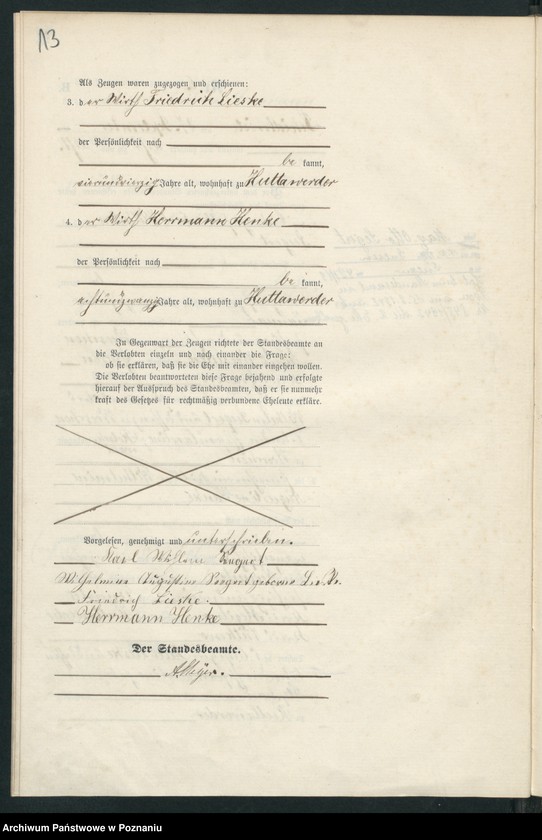 13
Als Zeugen waren zugezogen und erschienen:
3. der Wirth Friedrich Lieske
der Persönlichkeit nach
be kannt,
vierundvierzig Jahre alt, wohnhaft zu Huttawerder
4. der Wirth Herrmann Henke
der Persönlichkeit nach
be kannt,
achtundzwanzig Jahre alt, wohnhaft zu Huttawerder
In Gegenwart der Zeugen richtete der Standesbeamte an
die Verlobten einzeln und nach einander die Frage:
ob sie erklären, daß sie die Ehe mit einander eingehen wollen.
Die Verlobten beantworteten diese Frage bejahend und erfolgte
hierauf der Ausspruch des Standesbeamten, daß er sie nunmehr
kraft des Gesetzes für rechtmäßig verbundene Eheleute erkläre.
Vorgelesen, genehmigt und unterschrieben.
Karl
Augustine geborene
Friedrich Lieske.
Herrmann Henke
Der Standesbeamte.
Archiwum Państwowe w Poznaniu